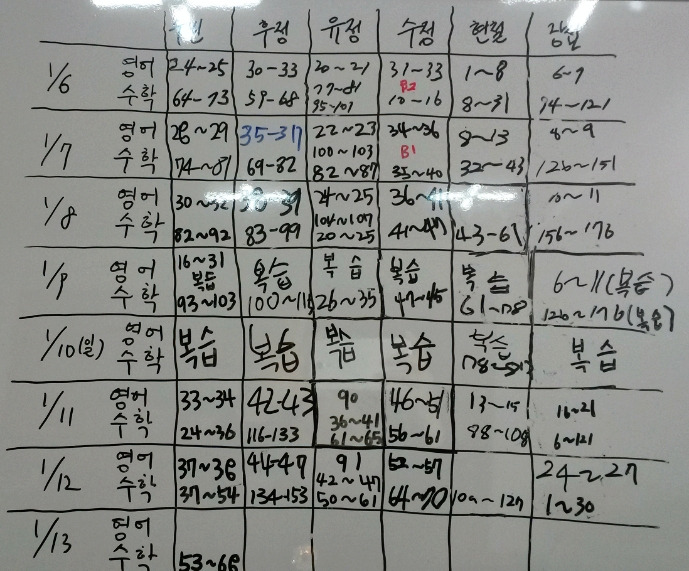 후정 유정 수정
1/6 영어 24~25 30-33 20~21 31~33 1~8 6~7
수학 64~73 59-68 77~81 95~101 B2 10~16 8~31 94~121
1/7 영어 28~29 35-37 22~23 34~36 8~13 8~9
수학 74~81 69-82 100~103 82~87 B1 35~40 32~43 126~151
1/8 영어 24~25 36~41 10~11
수학 82~92 83-99 104~107 20~25 43-61 156~176
1/9 영어 16~31 복습 복습 복습 복습 복습 6~11(복습)
수학 93~103 26~35 61~78 126~176(복습)
1/10(일) 영어 복습 복습 복습 복습 복습 복습
수학
1/11 영어 33~34 42-43 90 46~51 16~21
수학 24~36 116-133 36~41 61~65 56~61 88~108 6~121
1/12 영어 37~38 44-47 91 52~57 24~27
수학 37~54 134-153 42~47 50~61 64~70 1~30
1/13 영어
수학 53~68